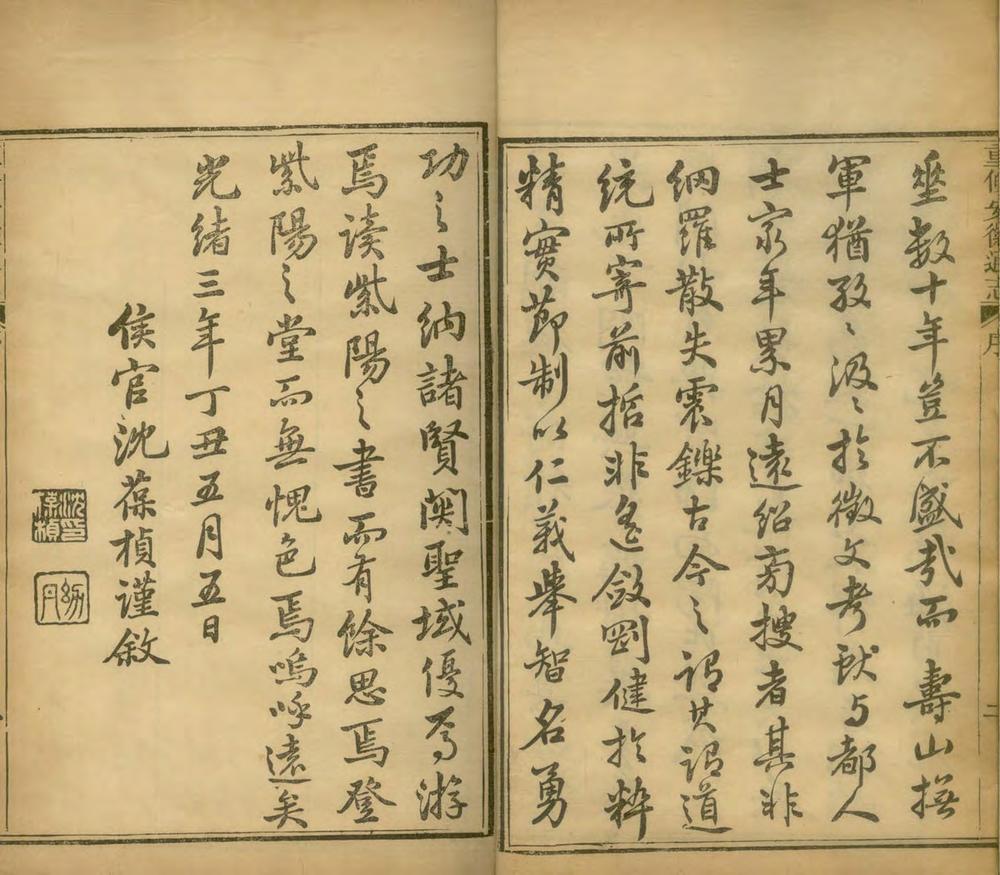 重修安徽通志 序
二
垂数十年豈不盛哉而 壽山撫
軍猶孜〻汲〻於徵文考獻与都人
士窮年累月遠紹旁搜者其非
網羅散失震鑠古今之謂其謂道
統所寄前哲非遙斂剛健於粹
精實節制以仁義舉智名勇
功之士納諸賢關聖域優焉游
焉读紫陽之書而有餘思焉登
紫陽之堂而無愧色焉嗚呼遠矣
光緒三年丁丑五月五日
侯官沈葆楨謹敘
沈印葆楨
幼丹